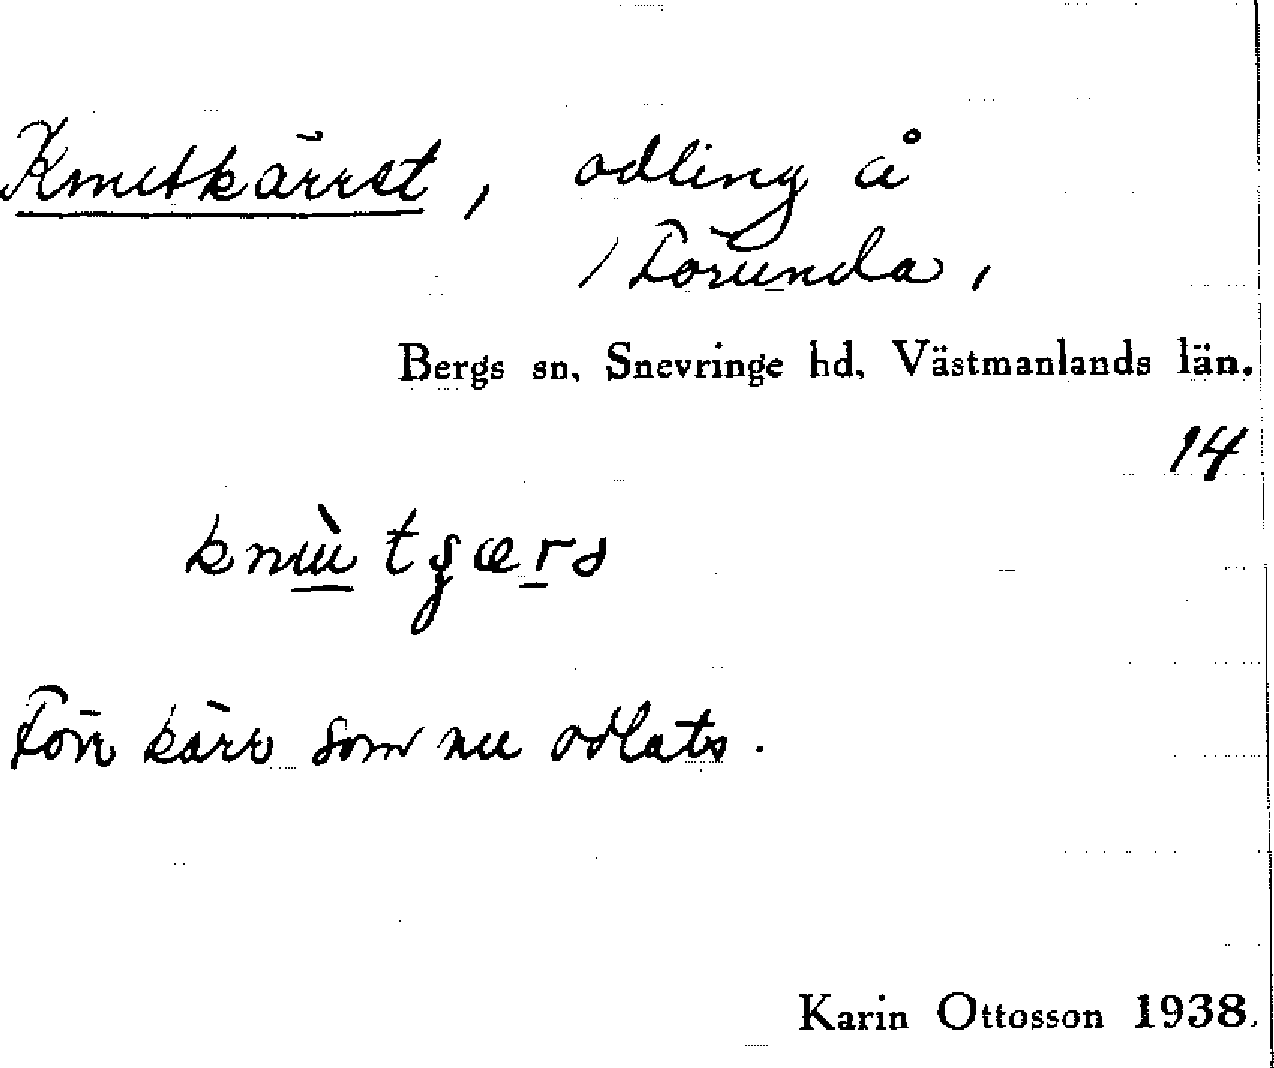 Knutkärret, odling å
/ Förunda,
Bergs sn, Snevringe hd, Västmanlands län.
14
knù̠tʂæṟə
Förr kärr som nu odlats.
Karin Ottosson 1938.